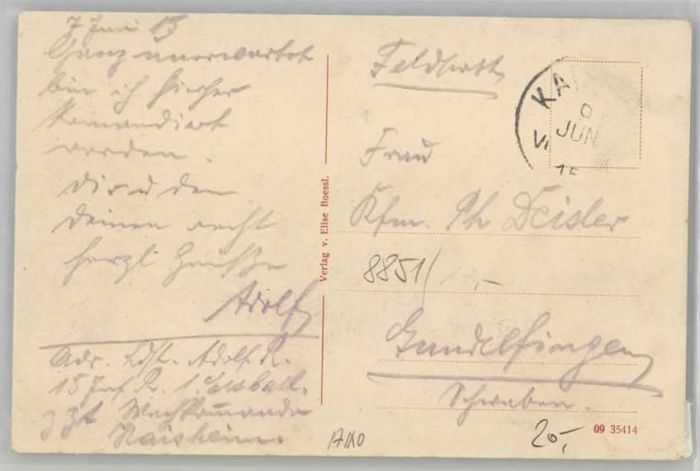 7 Juni 15
Ganz unerwartet
bin ich hierher
komandiert
worden.
Dir u den
Deinen recht
herzl Grüße
Adolf
Adr. Ldst. Adolf R.
15 Inf. R. 1 Ersbatl.
z zt Wachkomando
Kaisheim
Verlag v. Elise Boessl.
Feldpost
KA
JUN.
15
Frau
Kfm. Ph Deisler
8851/
Gundelfingen
Schwaben.
20,-
09 35414